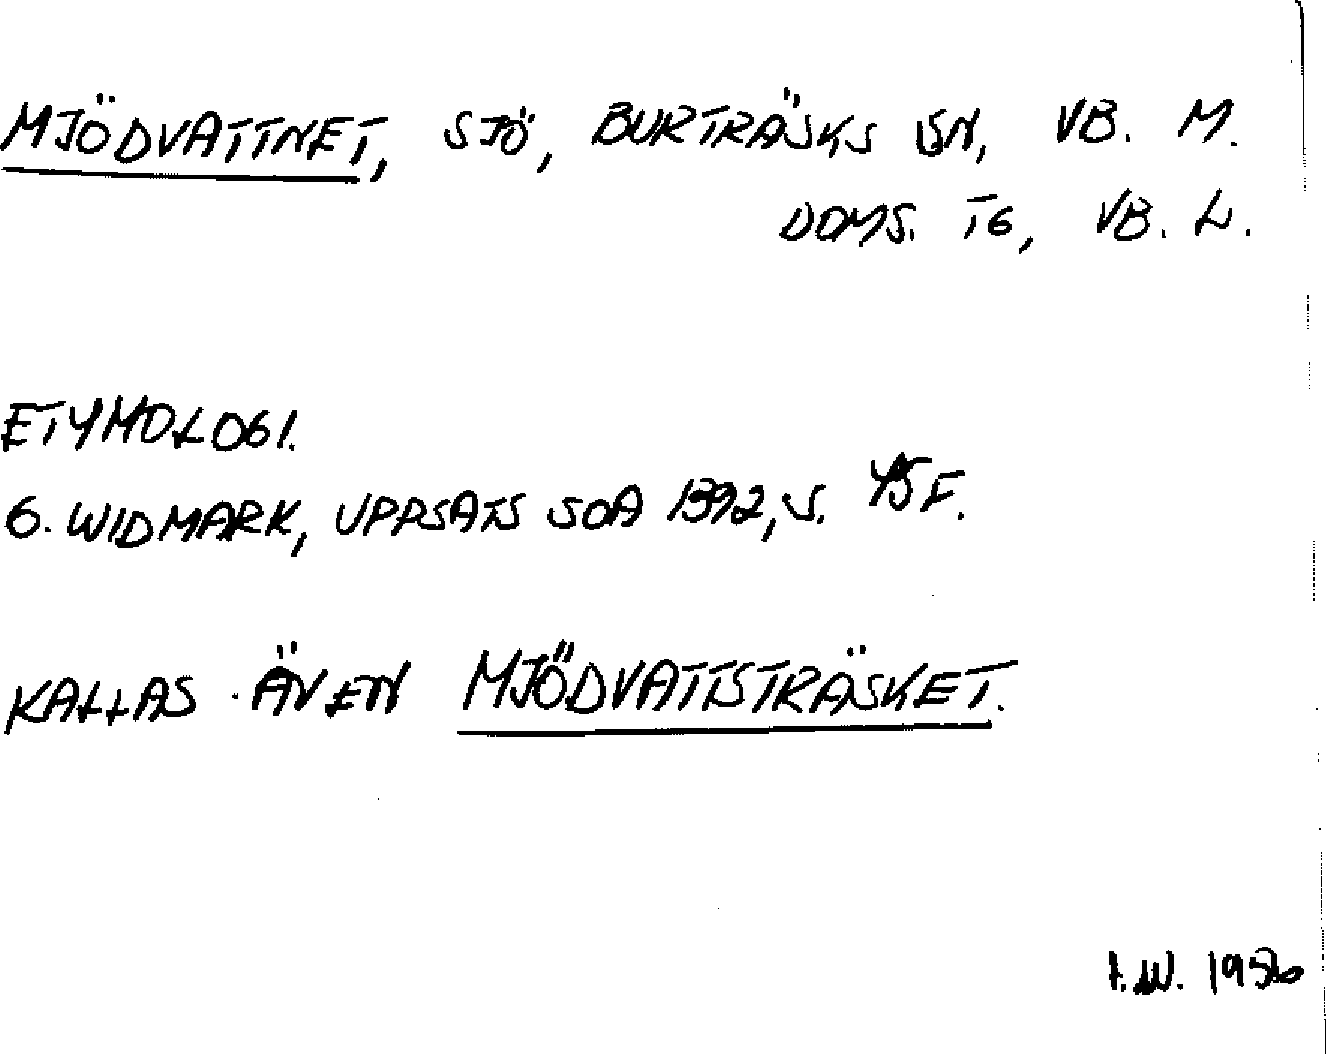 MJÖDVATTNET, SJÖ, BURTRÄSKS SN, VB. M.
DOMS. TG, VB. L.
ETYMOLOGI.
G. WIDMARK, UPPSATS SOA 1392, S. 45 F.
KALLAS ÄVEN MJÖDVATTSTRÄSKET.
I.W. 1956